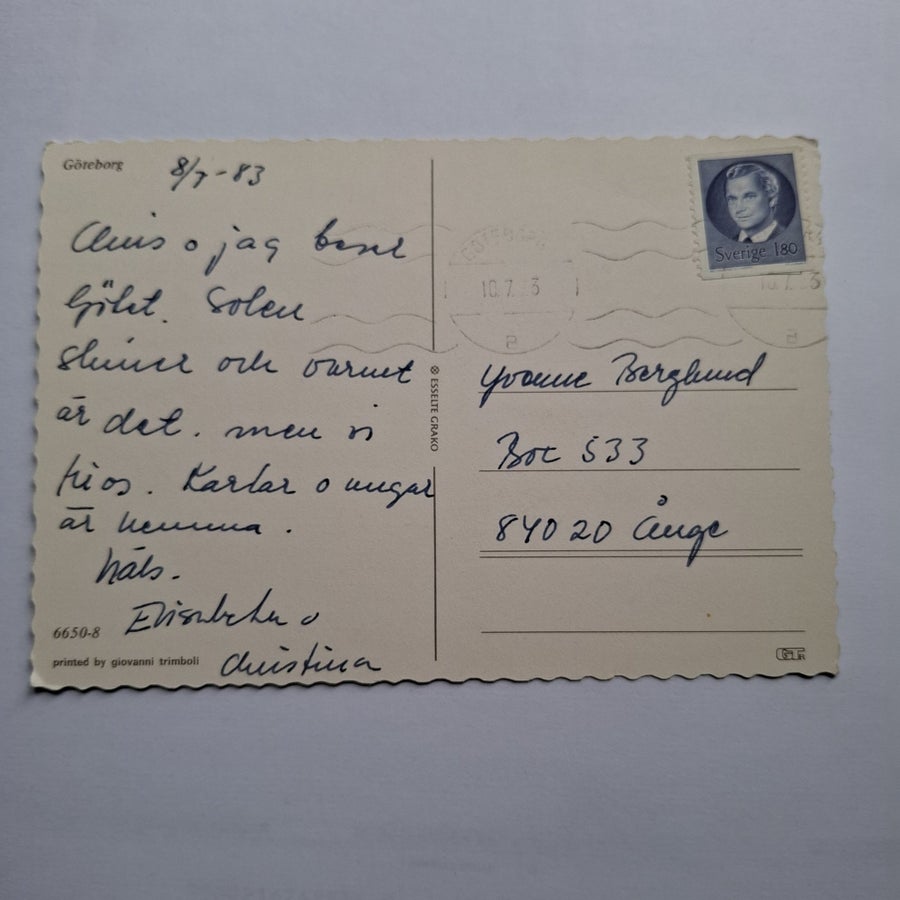 Göteborg
8/7-83
Chris o jag beser
Gölet. Solen
skiner och varmt
är det. men vi
trios. Karlar o ungar
är hemma.
Häls.
Elisabeth o
Christina
6650-8
printed by giovanni trimboli
ESSELTE GRAKO
GÖTEBORG
10.7. 3
Sverige 180
10.7. 3
Yvonne Berglund
Box 533
840 20 Ånge